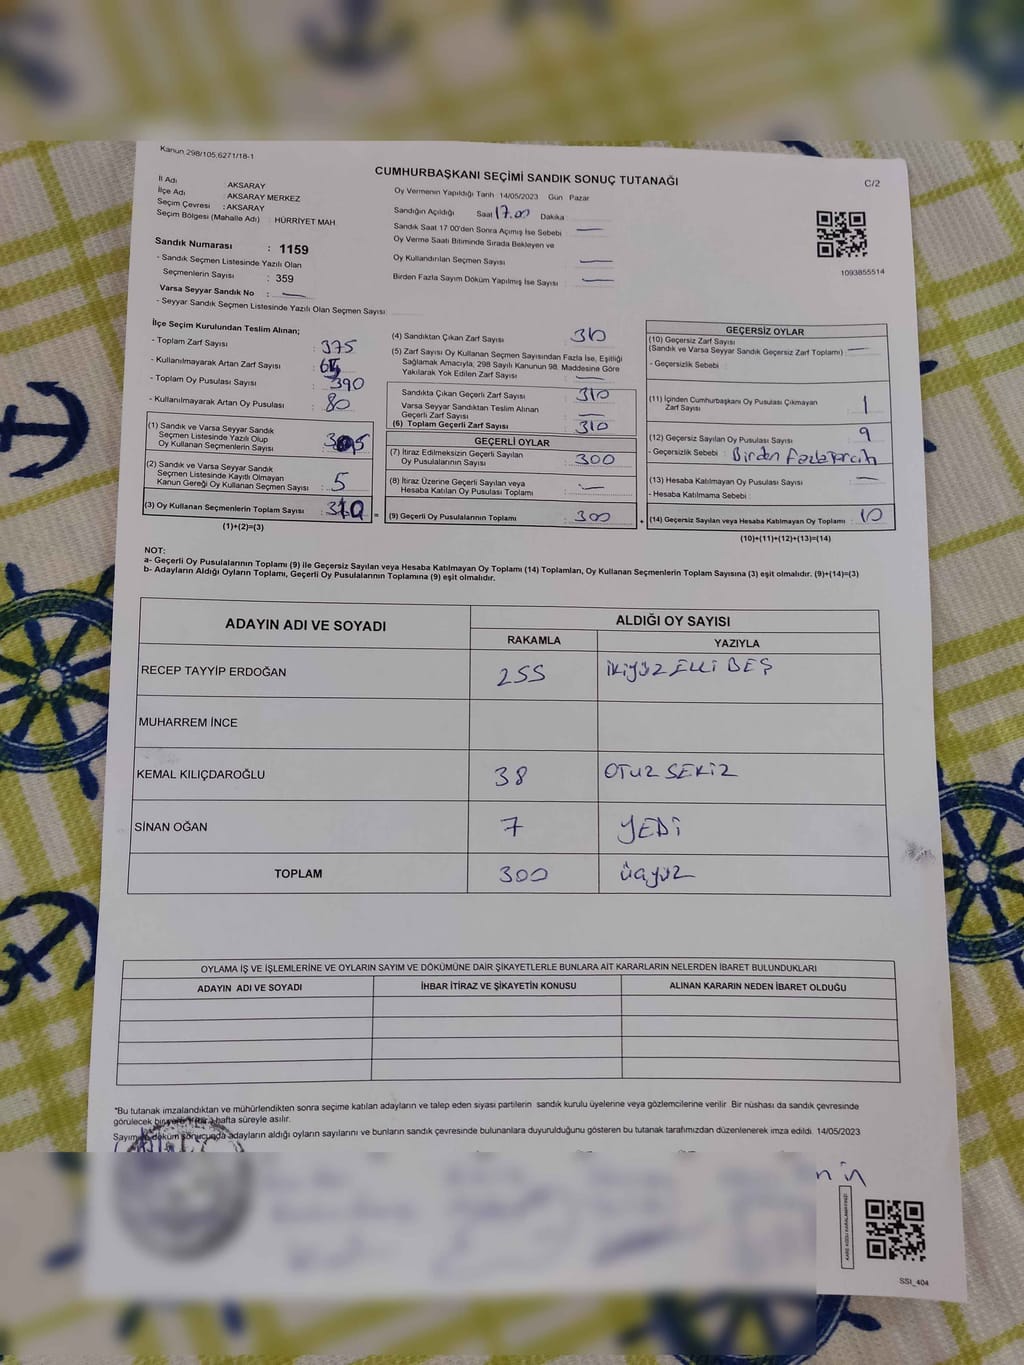 Kanun 298/105,6271/18-1
CUMHURBAŞKANI SEÇİMİ SANDIK SONUÇ TUTANAĞI
C/2
İl Adı : AKSARAY
İlçe Adı : AKSARAY MERKEZ
Seçim Çevresi : AKSARAY
Seçim Bölgesi (Mahalle Adı) : HÜRRİYET MAH.
Sandık Numarası : 1159
- Sandık Seçmen Listesinde Yazılı Olan
Seçmenlerin Sayısı : 359
Varsa Seyyar Sandık No : —
- Seyyar Sandık Seçmen Listesinde Yazılı Olan Seçmen Sayısı
Oy Vermenin Yapıldığı Tarih 14/05/2023 Gün Pazar
Sandığın Açıldığı Saat 17.00 Dakika
Sandık Saat 17 00'den Sonra Açımış İse Sebebi —
Oy Verme Saati Bitiminde Sırada Bekleyen ve
Oy Kullandırılan Seçmen Sayısı —
Birden Fazla Sayım Döküm Yapılmış İse Sayısı —
1093855514
İlçe Seçim Kurulundan Teslim Alınan;
- Toplam Zarf Sayısı : 375
- Kullanılmayarak Artan Zarf Sayısı : 65
- Toplam Oy Pusulası Sayısı : 390
- Kullanılmayarak Artan Oy Pusulası : 80
(1) Sandık ve Varsa Seyyar Sandık
Seçmen Listesinde Yazılı Olup
Oy Kullanan Seçmenlerin Sayısı : 305
(2) Sandık ve Varsa Seyyar Sandık
Seçmen Listesinde Kayıtlı Olmayan
Kanun Gereği Oy Kullanan Seçmen Sayısı : 5
(3) Oy Kullanan Seçmenlerin Toplam Sayısı : 310
(1)+(2)=(3)
(4) Sandıktan Çıkan Zarf Sayısı : 310
(5) Zarf Sayısı Oy Kullanan Seçmen Sayısından Fazla İse, Eşitliği
Sağlamak Amacıyla, 298 Sayılı Kanunun 98. Maddesine Göre
Yakılarak Yok Edilen Zarf Sayısı : —
Sandıkta Çıkan Geçerli Zarf Sayısı : 310
Varsa Seyyar Sandıktan Teslim Alınan
Geçerli Zarf Sayısı : —
(6) Toplam Geçerli Zarf Sayısı : 310
GEÇERLİ OYLAR
(7) İtiraz Edilmeksizin Geçerli Sayılan
Oy Pusulalarının Sayısı : 300
(8) İtiraz Üzerine Geçerli Sayılan veya
Hesaba Katılan Oy Pusulası Toplamı : —
= (9) Geçerli Oy Pusulalarının Toplamı : 300
GEÇERSİZ OYLAR
(10) Geçersiz Zarf Sayısı
(Sandık ve Varsa Seyyar Sandık Geçersiz Zarf Toplamı) : —
- Geçersizlik Sebebi :
(11) İçinden Cumhurbaşkanı Oy Pusulası Çıkmayan
Zarf Sayısı : 1
(12) Geçersiz Sayılan Oy Pusulası Sayısı : 9
- Geçersizlik Sebebi : Birden fazla tercih
(13) Hesaba Katılmayan Oy Pusulası Sayısı : —
- Hesaba Katılmama Sebebi :
+ (14) Geçersiz Sayılan veya Hesaba Katılmayan Oy Toplamı : 10
(10)+(11)+(12)+(13)=(14)
NOT:
a- Geçerli Oy Pusulalarının Toplamı (9) ile Geçersiz Sayılan veya Hesaba Katılmayan Oy Toplamı (14) Toplamları, Oy Kullanan Seçmenlerin Toplam Sayısına (3) eşit olmalıdır. (9)+(14)=(3)
b- Adayların Aldığı Oyların Toplamı, Geçerli Oy Pusulalarının Toplamına (9) eşit olmalıdır.
ADAYIN ADI VE SOYADI
ALDIĞI OY SAYISI
RAKAMLA YAZIYLA
RECEP TAYYİP ERDOĞAN 255 İKİYÜZ ELLİ BEŞ
MUHARREM İNCE
KEMAL KILIÇDAROĞLU 38 OTUZ SEKİZ
SİNAN OĞAN 7 YEDİ
TOPLAM 300 üçyüz
OYLAMA İŞ VE İŞLEMLERİNE VE OYLARIN SAYIM VE DÖKÜMÜNE DAİR ŞİKAYETLERLE BUNLARA AİT KARARLARIN NELERDEN İBARET BULUNDUKLARI
ADAYIN ADI VE SOYADI İHBAR İTİRAZ VE ŞİKAYETİN KONUSU ALINAN KARARIN NEDEN İBARET OLDUĞU
*Bu tutanak imzalandıktan ve mühürlendikten sonra seçime katılan adayların ve talep eden siyasi partilerin sandık kurulu üyelerine veya gözlemcilerine verilir. Bir nüshası da sandık çevresinde
görülecek bir yere hafta süreyle asılır.
Sayım ve döküm sonucunda adayların aldığı oyların sayılarını ve bunların sandık çevresinde bulunanlara duyurulduğunu gösteren bu tutanak tarafımızdan düzenlenerek imza edildi. 14/05/2023
SSI_404